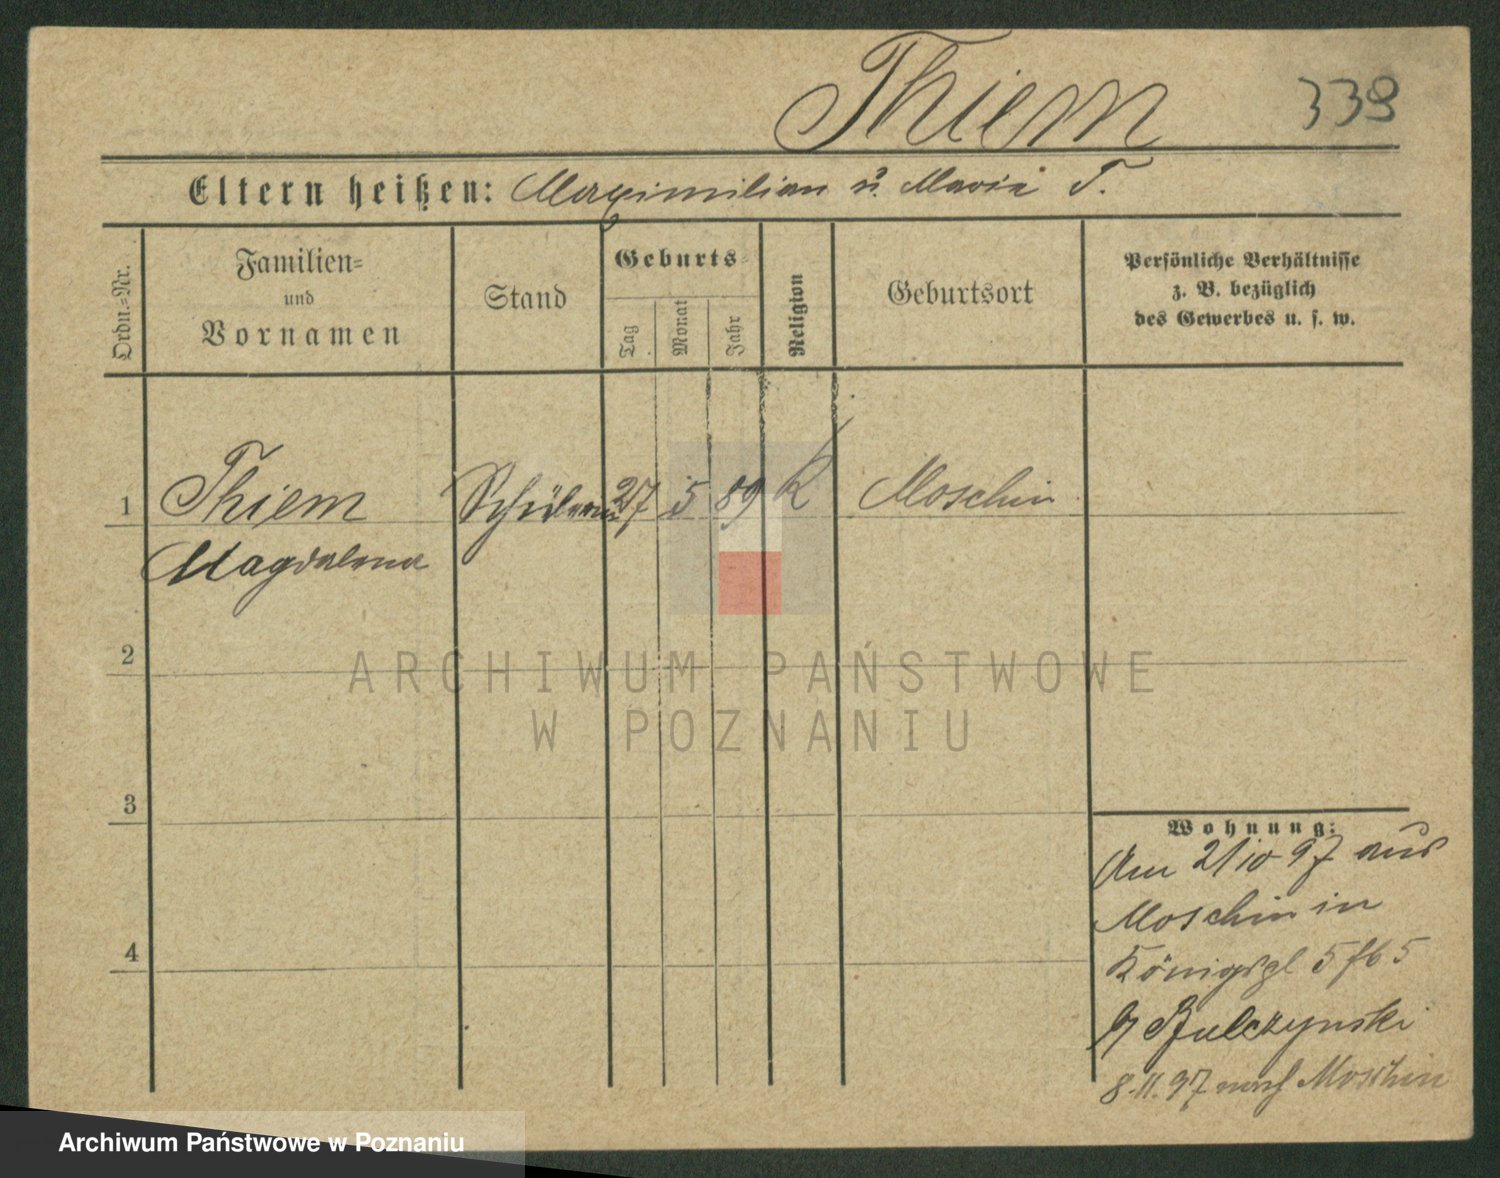 Thiem 339
Eltern heißen: Maximilian u. Maria T.
Ordn.-Nr.
Familien-
und
Vornamen
Stand
Geburts-
Tag
Monat
Jahr
Religion
Geburtsort
Persönliche Verhältnisse
z. B. bezüglich
des Gewerbes u. s. w.
1 Thiem Schülerin 27 5 89 K Moschin
Magdalena
2
3
4
Wohnung:
Am 21/10 97 aus
Moschin in
Königspl 5
Szulczynski
8.11.97 nach Moschin
ARCHIWUM PAŃSTWOWE
W POZNANIU
Archiwum Państwowe w Poznaniu